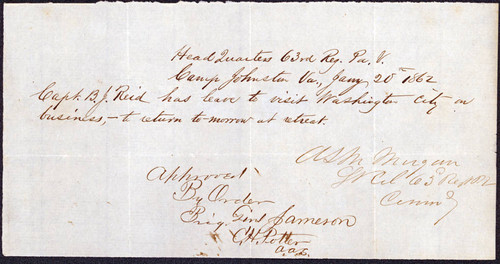 Head Quarters 63rd Reg. Pa. V.
Camp Johnston Va., Jany 20th 1862
Capt. B. J. Reid has leave to visit Washington City on
business, – to return to-morrow at retreat.
A S M Morgan
Lt Col 63 Regt PV
Comdg
Approved
By Order
Brig. Genl Jameson
C. H. Potter
a.a.G.